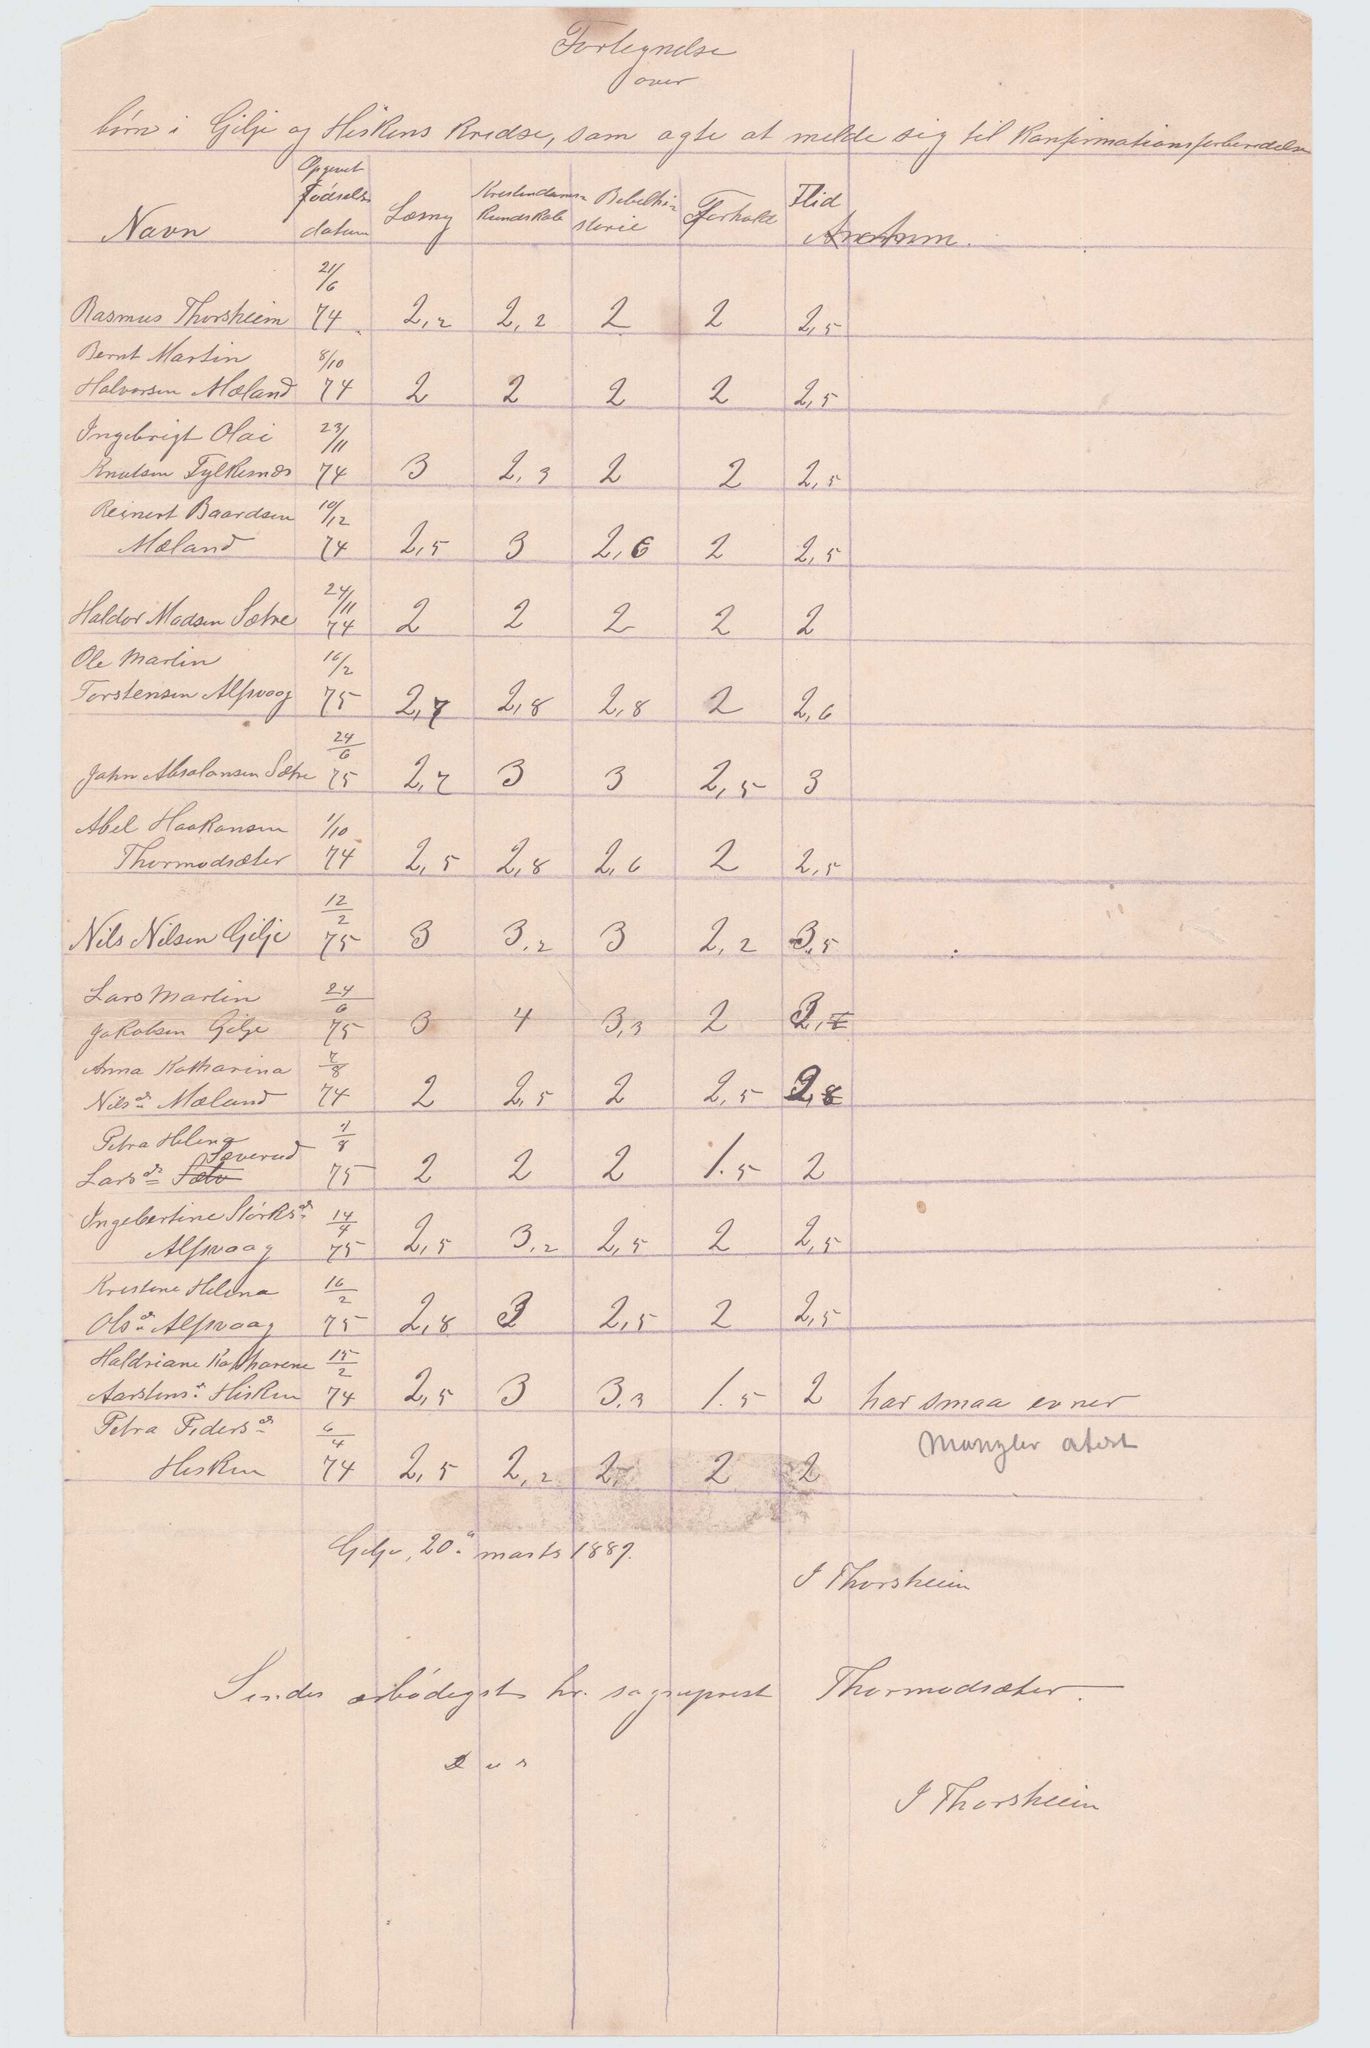 Fortegnelse
over
børn i Gilje og Hiskens Kredse, som agte at melde sig til Konfirmationsforberedelse
Navn Opgivet Fødselsdatum Læsning Kristendomskundskab Bibelhistorie Forhold Flid Anm.
21/6
Rasmus Thorsheim 74 2,2 2,2 2 2 2,5
Bernt Martin 8/10
Halvorsen Mæland 74 2 2 2 2 2,5
Ingebrigt Olai 23/11
Knutsen Fylkesnæs 74 3 2,3 2 2 2,5
Reinert Baardsen 10/12
Mæland 74 2,5 3 2,6 2 2,5
24/11
Haldor Madsen Sætre 74 2 2 2 2 2
Ole Martin 16/2
Torstensen Alfsvaag 75 2,7 2,8 2,8 2 2,6
24/6
John Absalonsen Sætre 75 2,7 3 3 2,5 3
Abel Haakonsen 1/10
Thormodsæter 74 2,5 2,8 2,6 2 2,5
12/2
Nils Nilsen Gilje 75 3 3,2 3 2,2 3,5
Lars Martin 24/6
Jakobsen Gilje 75 3 4 3,3 2
Anna Katharina 7/8
Nilsdr Mæland 74 2 2,5 2 2,5 2,8
Petra Helena
Larsdr Sæverud 75 2 2 2 1.5 2
Ingebertine Størksdr 14/4
Alfsvaag 75 2,5 3,2 2,5 2 2,5
Kristine Helena 16/2
Olsdr Alfsvaag 75 2,8 3 2,5 2 2,5
Haldriane Katharine 15/2
Aarstensdr Hisken 74 2,5 3 3.3 1.5 2 har smaa evner
Petra Pedersdr 6/4 Mangler atest
Hisken 74 2,5 2,2 2, 2 2
Gilje, 20de marts 1889.
J Thorsheim
Sendes ærbødigst hr. sogneprest Thormodsæter.
D u s
J Thorsheim